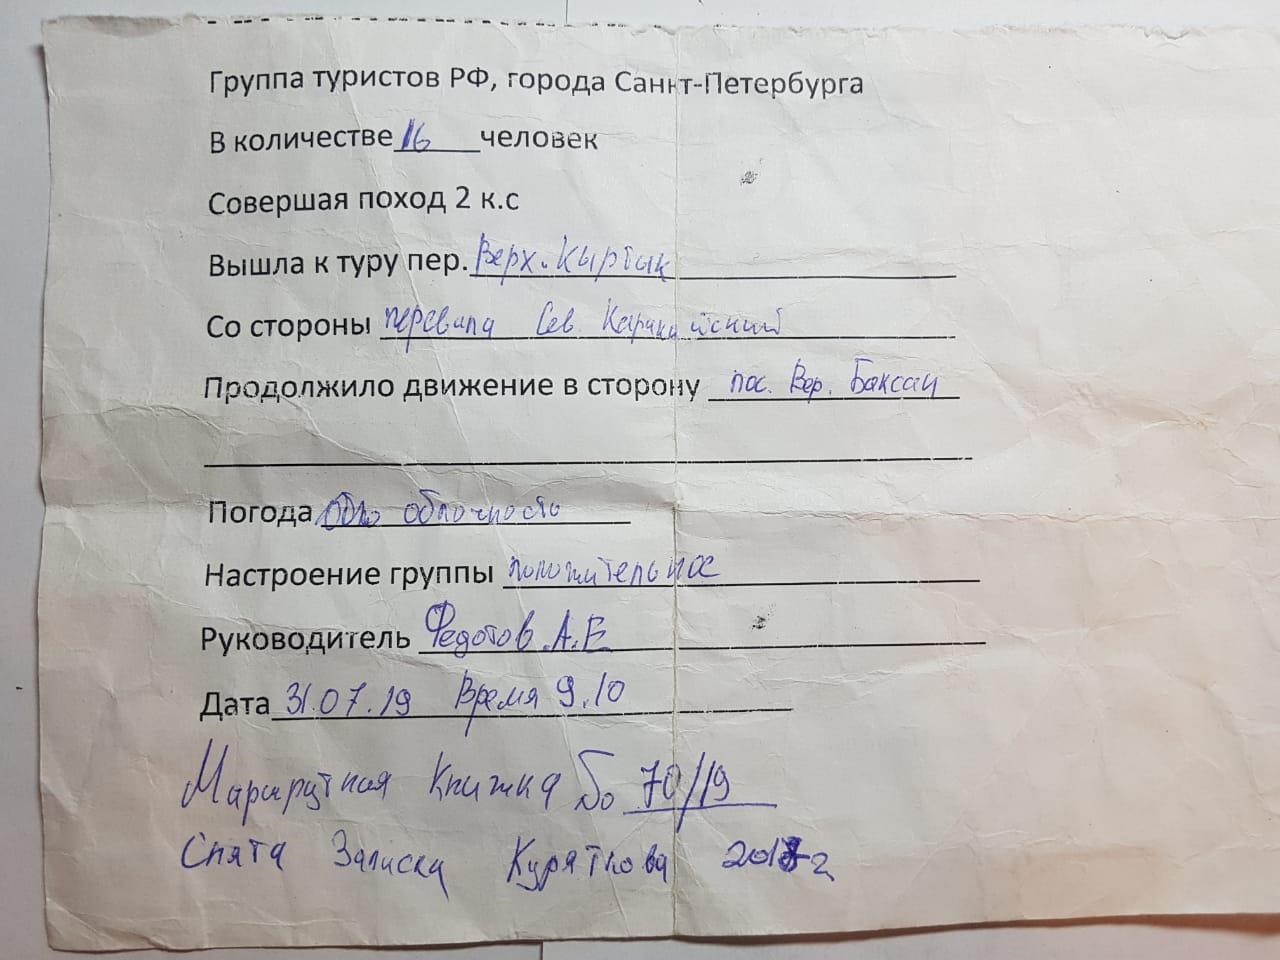 Группа туристов РФ, города Санкт-Петербурга
В количестве 16 человек
Совершая поход 2 к.с
Вышла к туру пер. Верх. Кыртык
Со стороны перевала Сев. Каракайский
Продолжило движение в сторону пос. Вер. Баксан
Погода облачность
Настроение группы положительное
Руководитель Федотов А.Е
Дата 31.07.19 Время 9.10
Маршрутная Книжка № 70/19
Снята Записка Куряткова